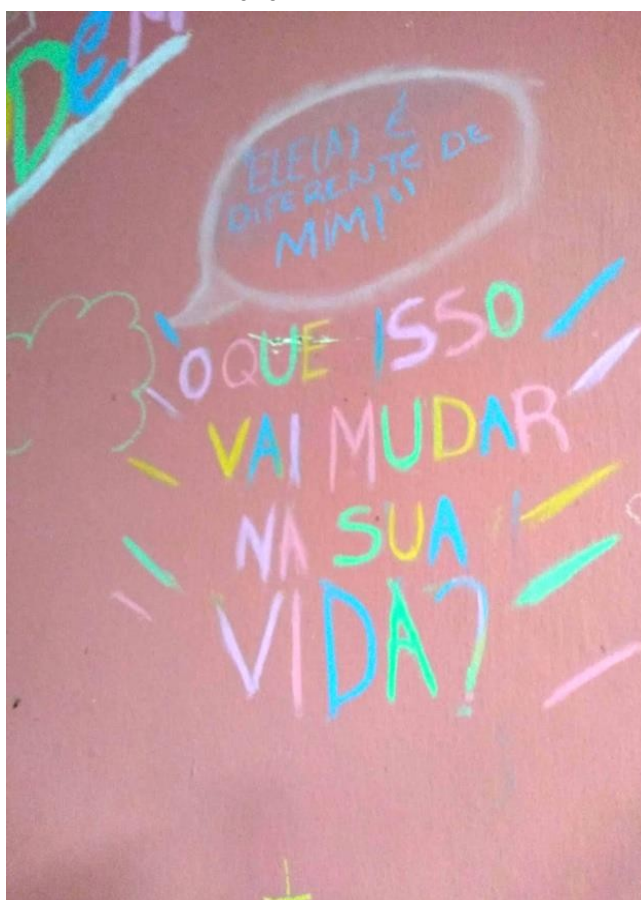 DEM
"ELE(A) É
DIFERENTE DE
MIM!"
O QUE ISSO
VAI MUDAR
NA SUA
VIDA?